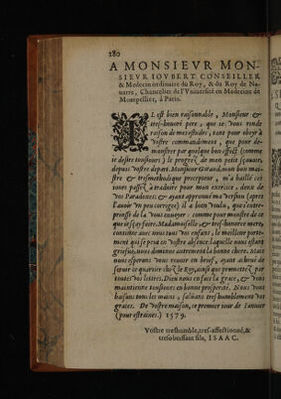 180
A MONSIEVR MON-
SIEVR IOVBERT CONSEILLER
& Medecin ordinaire du Roy, & du Roy de Na-
uarre, Chancelier de l'Vniuersité en Medecine de
Montpellier, à Paris.
IL est bien raisonnable, Monsieur &
tres-honoré pere, que ie vous rende
raison de mes estudes, tant pour obeyr à
vostre commandement, que pour de-
monstrer par quelque bon effect (comme
ie desire tousiours) le progrez de mon petit sçauoir,
depuis vostre depart. Monsieur Girard, mon bon mai-
stre & tresmethodique precepteur, m'a baillé ces
iours passez à traduire pour mon exercice, deux de
vos Paradoxes: & ayant approuué ma version (apres
l'auoir vn peu corrigee) il a bien voulu, que i'entre-
prensse de la vous enuoyer: comme pour monstre de ce
que ie sçay faire. Madamoiselle, & tres-honoree mere,
continue auec nous tous vos enfans, le meilleure porte-
ment qui se peut en vostre absence laquelle nous estant
griefue, nous diminue autrement la bonne chere. Mais
nous esperons vous reuoir en bref, ayant acheué de
seruir ce quartier chez le Roy, ainsi que promettez par
toutes vos lettres. Dieu nous en face la grace, & vous
maintienne tousiours en bonne prosperité. Nous vous
baisons tous les mains, saluans tres humblement vos
graces. De vostre maison, ce premier iour de Ianuier
(pour estreines.) 1579.
Vostre treshumble, tres-affectionné, &
tresobeissant fils, ISAAC.